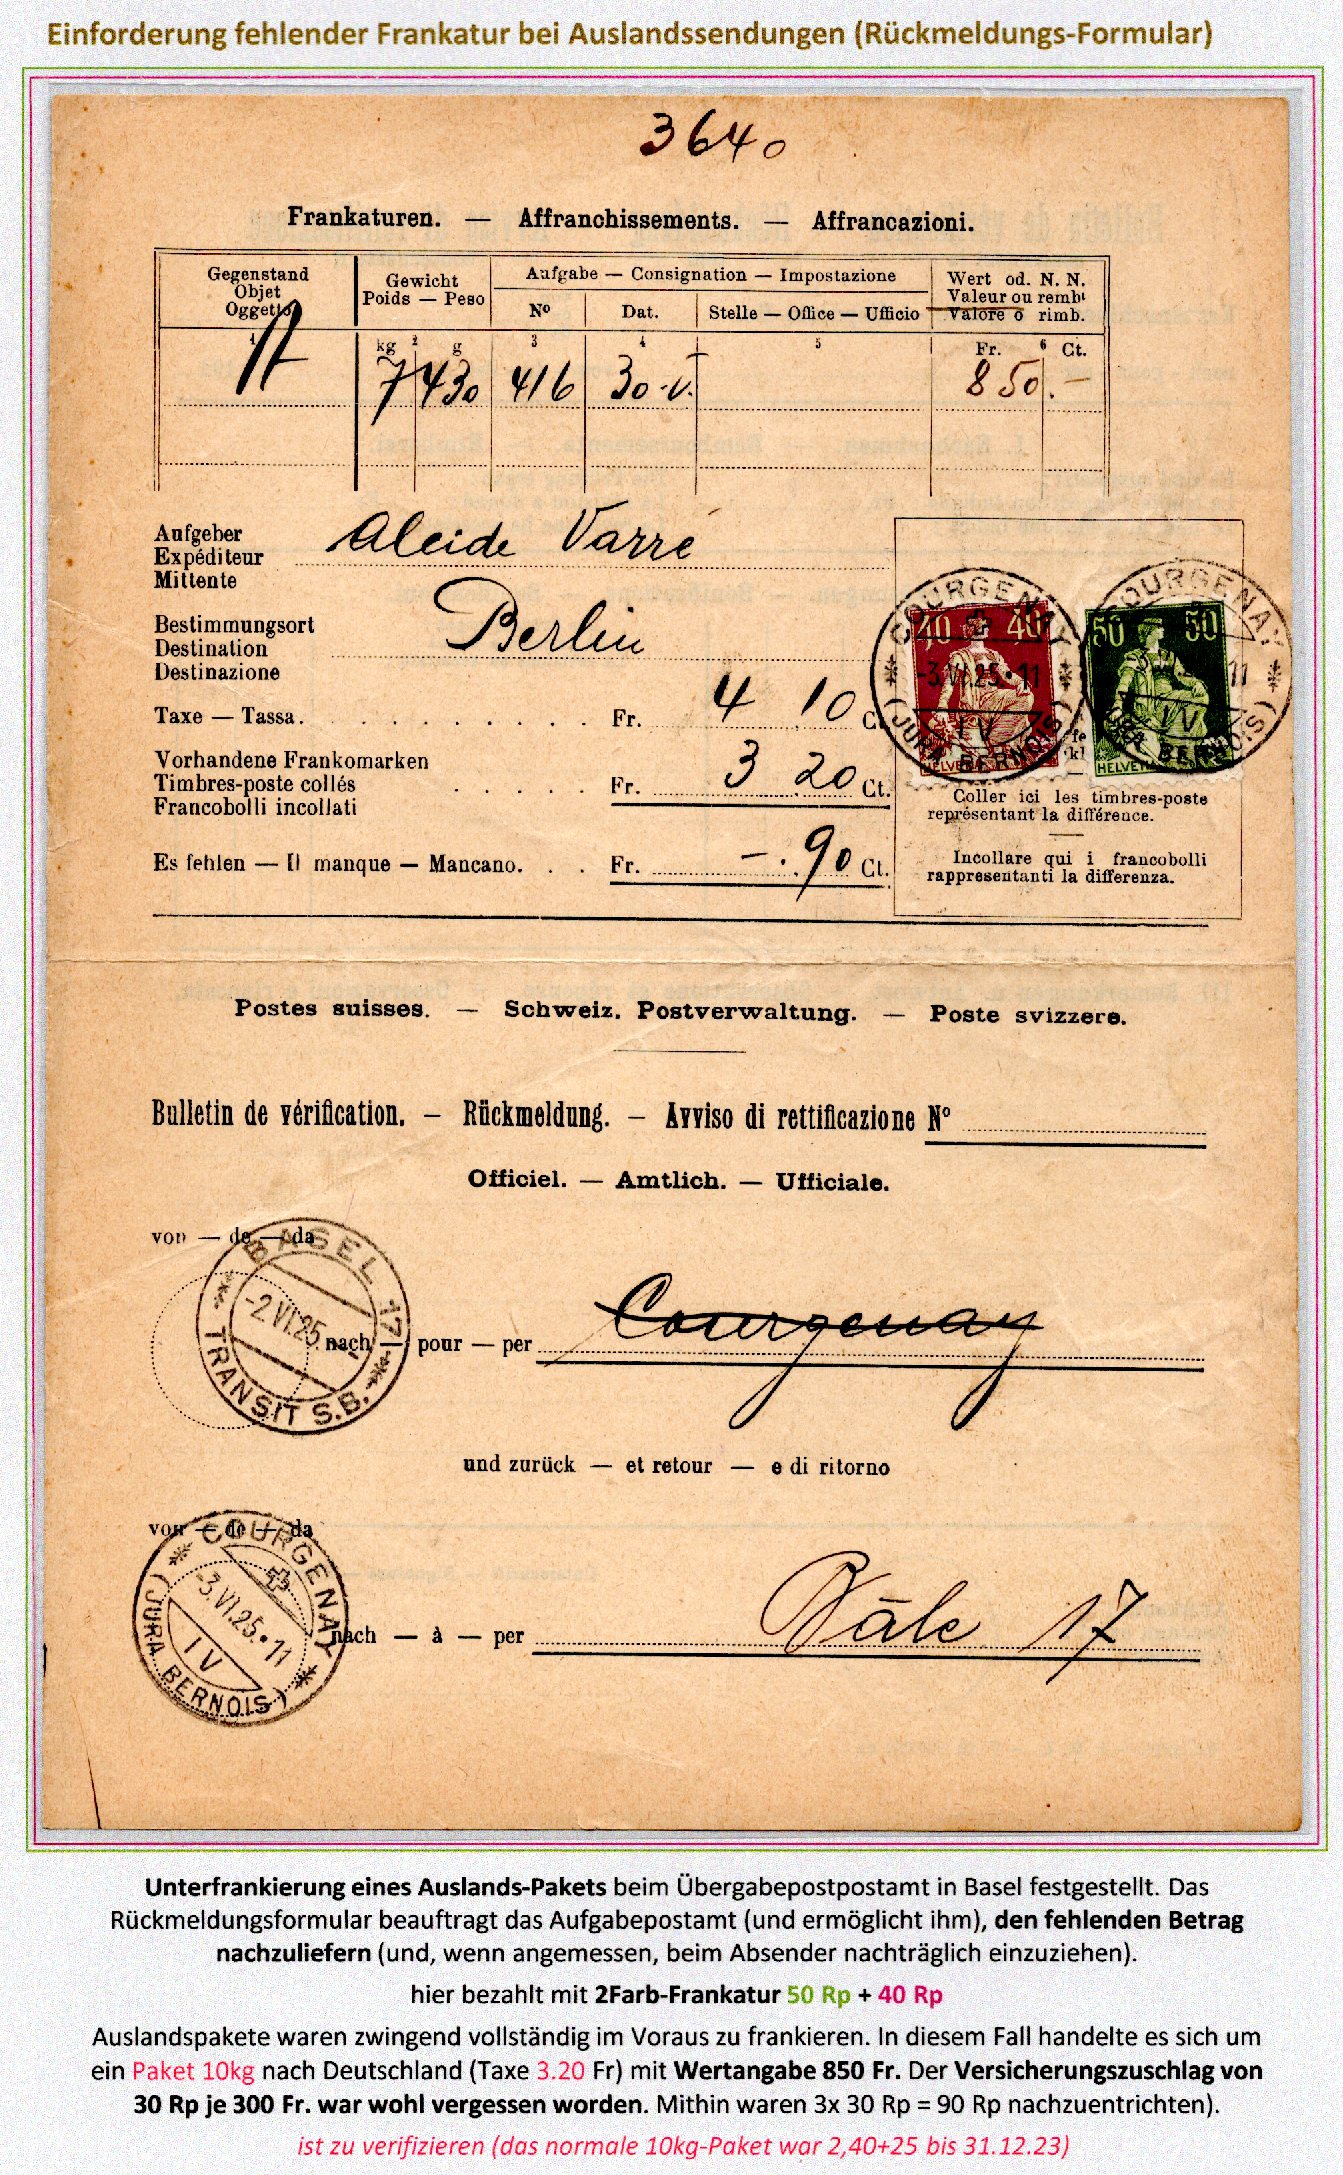 Einforderung fehlender Frankatur bei Auslandssendungen (Rückmeldungs-Formular)
3640
Frankaturen. — Affranchissements. — Affrancazioni.
Gegenstand
Objet
Oggetto
Gewicht
Poids — Peso
Aufgabe — Consignation — Impostazione
Nº
Dat.
Stelle — Office — Ufficio
Wert od. N. N.
Valeur ou rembt
Valore o rimb.
1
kg 2 g
3
4
5
Fr. 6 Ct.
7 430 416 30.V. 850.—
Aufgeber
Expéditeur
Mittente
Aleide Varré
Bestimmungsort
Destination
Destinazione
Berlin
Taxe — Tassa. Fr. 4 10 Ct.
Vorhandene Frankomarken
Timbres-poste collés
Francobolli incollati
Fr. 3 20 Ct.
Es fehlen — Il manque — Mancano. Fr. —.90 Ct.
COURGENAY
40 40
-3.VI.25.•11
IV
(JURA BERNOIS)
HELVETIA
COURGENAY
50 50
11
IV
HELVETIA
Coller ici les timbres-poste
représentant la différence.
Incollare qui i francobolli
rappresentanti la differenza.
Postes suisses. — Schweiz. Postverwaltung. — Poste svizzere.
Bulletin de vérification. — Rückmeldung. — Avviso di rettificazione Nº
Officiel. — Amtlich. — Ufficiale.
von — de — da
BASEL 17
-2.VI.25.-
TRANSIT S.B.
nach — pour — per Courgenay
und zurück — et retour — e di ritorno
von — de — da
COURGENAY
-3.VI.25.•11
IV
(JURA BERNOIS)
nach — à — per Bâle 17
Unterfrankierung eines Auslands-Pakets beim Übergabepostpostamt in Basel festgestellt. Das
Rückmeldungsformular beauftragt das Aufgabepostamt (und ermöglicht ihm), den fehlenden Betrag
nachzuliefern (und, wenn angemessen, beim Absender nachträglich einzuziehen).
hier bezahlt mit 2Farb-Frankatur 50 Rp + 40 Rp
Auslandspakete waren zwingend vollständig im Voraus zu frankieren. In diesem Fall handelte es sich um
ein Paket 10kg nach Deutschland (Taxe 3.20 Fr) mit Wertangabe 850 Fr. Der Versicherungszuschlag von
30 Rp je 300 Fr. war wohl vergessen worden. Mithin waren 3x 30 Rp = 90 Rp nachzuentrichten).
ist zu verifizieren (das normale 10kg-Paket war 2,40+25 bis 31.12.23)